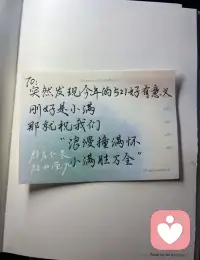 To:
突然发现今年的521好有意义
刚好是小满
那就祝我们
“浪漫撞满怀
小满胜万全”